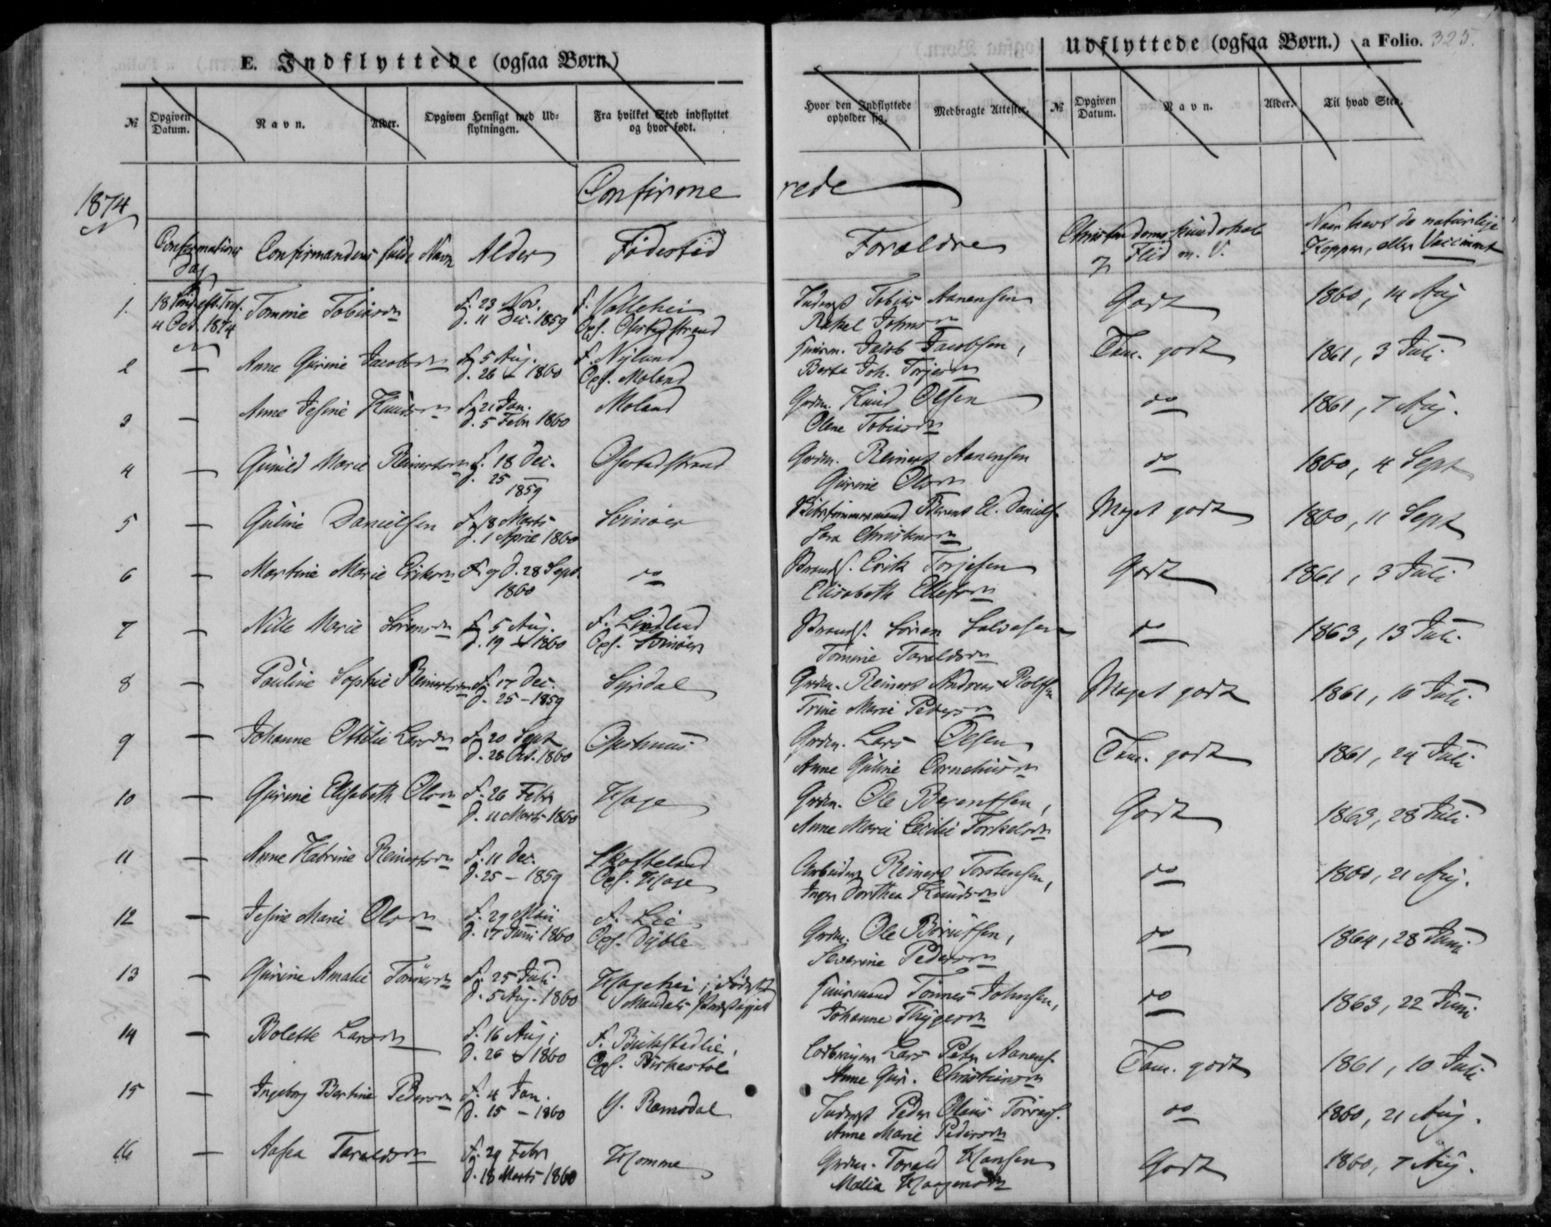 E. Indflyttede (ogsaa Børn.)
Udflyttede (ogsaa Børn.) a Folio. 325.
№ Opgiven Datum. Navn. Alder. Opgiven Hensigt med Udflytningen. Fra hvilket Sted indflyttet og hvor født. Hvor den Indflyttede opholder sig. Medbragte Attester. № Opgiven Datum. Navn. Alder. Til hvad Sted.
1874 Confirmerede
Confirmations Dag Confirmandens fulde Navn Alder Fødested Forældre Christendomskundskab og Flid m. V. Naar havt de naturlige Kopper, eller Vaccineret
1. 18 Sønd. eft. Tref. 4 Oct. 1874 Tomine Tobiasdn f. 23 Nov. d. 11 Dec. 1859 f. Vallehei Opf. Ofsted strand Inderst Tobias Aanensen Rakel Johnsdn Godt 1860, 14 Aug
2 — Anne Gurine Jacobsdn f. 5 Aug. d. 26 - 1860 f. Nylund Opf. Moland Huusm. Jacob Jacobsen, Berte Joh. Torjesdn Tem. godt 1861, 3 Juli
3 — Anne Josine Knudsdn f. 21 Jan. d. 5 Febr 1860 Moland Grdm. Knud Olsen Olene Tobiasdn do 1861, 7 Aug.
4 — Gunild Marie Reinertsdn f. 18 Dec. d. 25 — 1859 Ofstedstrand Grdm. Reinert Aanensen Gurine Olsdn do 1860, 4 Sept
5 — Guline Danielsen f. 18 Marts d. 1 April 1860 Svinøer Skibstømmermand Berent E. Daniels. Sara Christensdn Meget godt 1860, 11 Sept
6 — Martine Marie Eriksdn f. og d. 28 Sept. 1860 do Strands. Erik Torjesen Elisabeth Ellefsdn Godt 1861, 3 Juli
7 — Nille Marie Sørensdn f. 5 Aug. d. 19 - 1860 f. Lindland Opf. Svinøer Strands. Søren Salvesen Tomine Taraldsdn do 1863, 13 Juli
8 — Pauline Sophie Reinertsdn f. 17 Dec. d. 25 - 1859 Syrdal Grdm. Reinert Andreas Rolfsen Trine Marie Pedersdn Meget godt 1861, 10 Juli
9 — Johanne Ottilie Larsdn f. 20 Sept d. 28 Oct. 1860 Grdm. Lars Olsen Anne Guline Corneliusdn Tem. godt 1861, 24 Juli
10 — Gurine Elisabeth Olsdn f. 26 Febr d. 11 Marts 1860 Hage Grdm. Ole Berentsen, Anne Marie Cecilie Torkelsdn Godt 1863, 28 Juli
11 — Anne Katrine Reinertsdn f. 11 Dec. d. 25 - 1859 Skofteland Opf. Hage Arbeider Reinert Torstensen, Inger Dorthea Knudsdn do 1860, 21 Aug.
12 — Josine Marie Olsdn f. 29 Mai d. 17 Juni 1860 f. Lie Opf. Dyble Grdm. Ole Berntsen, Severine Pedersdn do 1864, 28 Juni
13 — Gurine Amalie Tønnesdn f. 25 Juli d. 5 Aug. 1860 Hageheia; Mandals Præstegjeld Huusmand Tønnes Johnsen, Johanne Thygesdn do 1863, 22 Juni
14 — Bolette Larsdn f. 16 Aug; d. 26 - 1860 Opf. Birkestøl Lars Peter Aanens. Anne Gur. Christiansdn Tem. godt 1861, 10 Juli
15 — Ingeborg Bertine Pedersdn f. 4 Jan. d. 15 - 1860 Y. Ramsdal Inderst Peder Olaus Torres. Anne Marie Pedersdn do 1860, 21 Aug.
16 — Aasa Taraldsdn f. 29 Febr d. 18 Marts 1860 Homme Grdm. Torald Hansen Malia Haagensdn Godt 1860, 7 Aug.